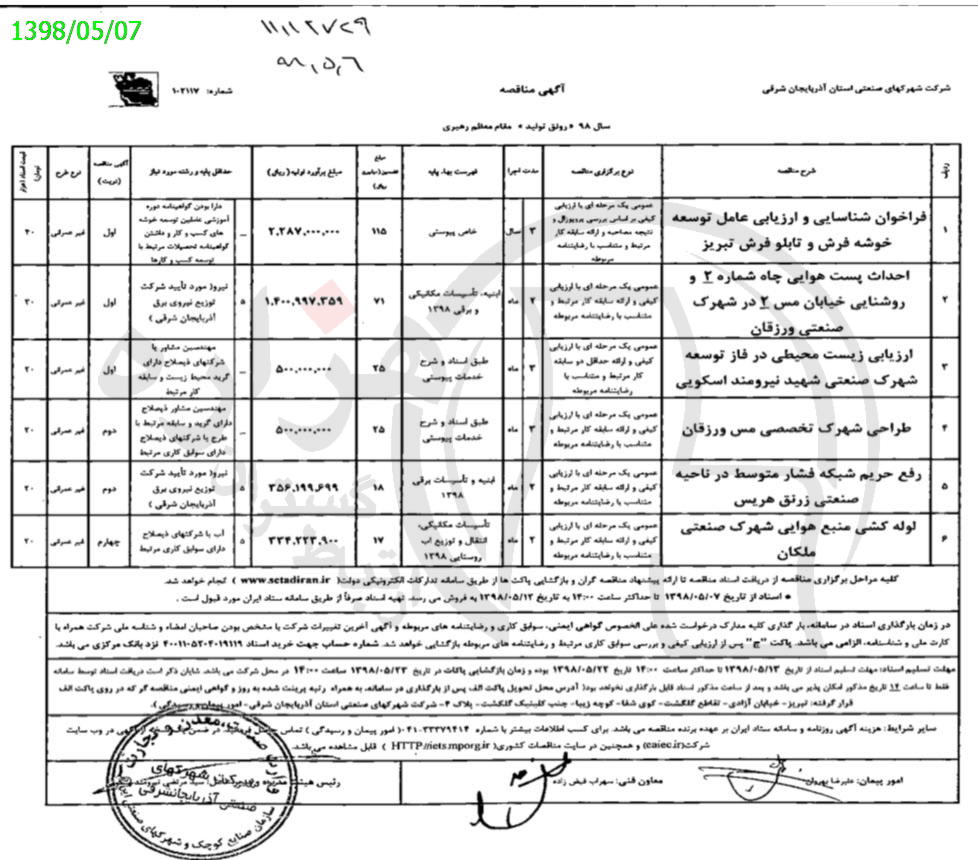 1398/05/07
۱۱,۱۲۷۲۹
۹۸,۵,۶
شرکت شهرکهای صنعتی استان آذربایجان شرقی
آگهی مناقصه
شماره: ۱۰۲۱۱۷
سال ۹۸ « رونق تولید » مقام معظم رهبری
ردیف
شرح مناقصه
نوع برگزاری مناقصه
مدت اجرا
فهرست بهاء پایه
مبلغ برآورد اولیه( ریال)
حداقل پایه و رشته مورد نیاز
آگهی مناقصه (نوبت)
نوع طرح
۱
فراخوان شناسایی و ارزیابی عامل توسعه
خوشه فرش و تابلو فرش تبریز
عمومی یک مرحله ای با ارزیابی
کیفی بر اساس بررسی پروپوزال و
نتیجه مصاحبه و ارائه سابقه کار
مرتبط و متناسب با رضایتنامه
مربوطه
۳ سال
خاص پیوستی
۱۱۵
۲.۲۸۷.۰۰۰.۰۰۰
_
دارا بودن گواهینامه دوره
آموزشی عاملین توسعه خوشه
های کسب و کار و داشتن
گواهینامه تحصیلات مرتبط با
توسعه کسب و کارها
اول
غیر عمرانی
۲
احداث پست هوایی چاه شماره ۲ و
روشنایی خیابان مس ۲ در شهرک
صنعتی ورزقان
عمومی یک مرحله ای با ارزیابی
کیفی و ارائه سابقه کار مرتبط و
متناسب با رضایتنامه مربوطه
۲ ماه
ابنیه، تأسیسات مکانیکی
و برقی ۱۳۹۸
۷۱
۱.۴۰۰.۹۹۷.۳۵۹
۵
نیرو( مورد تأیید شرکت
توزیع نیروی برق
آذربایجان شرقی )
اول
غیر عمرانی
۲۰
۳
ارزیابی زیست محیطی در فاز توسعه
شهرک صنعتی شهید نیرومند اسکویی
عمومی یک مرحله ای با ارزیابی
کیفی و ارائه حداقل دو سابقه
کار مرتبط و متناسب با
رضایتنامه مربوطه
۳ ماه
طبق اسناد و شرح
خدمات پیوستی
۲۵
۵۰۰.۰۰۰.۰۰۰
_
مهندسین مشاور یا
شرکتهای ذیصلاح دارای
گرید محیط زیست و سابقه
کار مرتبط
اول
غیر عمرانی
۲۰
۴
طراحی شهرک تخصصی مس ورزقان
عمومی یک مرحله ای با ارزیابی
کیفی و ارائه سابقه کار مرتبط و
متناسب با رضایتنامه مربوطه
۳ ماه
طبق اسناد و شرح
خدمات پیوستی
۲۵
۵۰۰.۰۰۰.۰۰۰
_
مهندسین مشاور ذیصلاح
دارای گرید و سابقه مرتبط با
طرح یا شرکتهای ذیصلاح
دارای سوابق کاری مرتبط
دوم
غیر عمرانی
۲۰
۵
رفع حریم شبکه فشار متوسط در ناحیه
صنعتی زرنق هریس
عمومی یک مرحله ای با ارزیابی
کیفی و ارائه سابقه کار مرتبط و
متناسب با رضایتنامه مربوطه
۲ ماه
ابنیه و تأسیسات برقی
۱۳۹۸
۱۸
۳۵۶.۱۹۹.۶۹۹
۵
نیرو( مورد تأیید شرکت
توزیع نیروی برق
آذربایجان شرقی )
دوم
غیر عمرانی
۲۰
۶
لوله کشی منبع هوایی شهرک صنعتی
ملکان
عمومی یک مرحله ای با ارزیابی
کیفی و ارائه سابقه کار مرتبط و
متناسب با رضایتنامه مربوطه
۲ ماه
تأسیسات مکانیکی،
انتقال و توزیع آب
روستایی ۱۳۹۸
۱۷
۳۳۴.۲۲۳.۹۰۰
۵
آب یا شرکتهای ذیصلاح
دارای سوابق کاری مرتبط
چهارم
غیر عمرانی
۲۰
کلیه مراحل برگزاری مناقصه از دریافت اسناد مناقصه تا ارائه پیشنهاد مناقصه گران و بازگشایی پاکت ها از طریق سامانه تدارکات الکترونیکی دولت( www.setadiran.ir ) انجام خواهد شد.
● اسناد از تاریخ ۱۳۹۸/۰۵/۰۷ تا حداکثر ساعت ۱۴:۰۰ به تاریخ ۱۳۹۸/۰۵/۱۲ به فروش می رسد. تهیه اسناد صرفاً از طریق سامانه ستاد ایران مورد قبول است .
در زمان بارگذاری اسناد در سامانه، بار گذاری کلیه مدارک درخواست شده علی الخصوص گواهی ایمنی، سوابق کاری و رضایتنامه های مربوطه و آگهی آخرین تغییرات شرکت با مشخص بودن صاحبان امضاء و شناسه ملی شرکت همراه با
کارت ملی و شناسنامه، الزامی می باشد. پاکت "ج" پس از ارزیابی کیفی و بررسی سوابق کاری مرتبط و رضایتنامه های مربوطه بازگشایی خواهد شد. شماره حساب جهت خرید اسناد ۴۰۰۱۱۰۵۲۰۴۰۱۹۱۱۹ نزد بانک مرکزی می باشد.
مهلت تسلیم اسناد: مهلت تسلیم اسناد از تاریخ ۱۳۹۸/۰۵/۱۳ تا حداکثر ساعت ۱۴:۰۰ تاریخ ۱۳۹۸/۰۵/۲۲ بوده و زمان بازگشایی پاکات در تاریخ ۱۳۹۸/۰۵/۲۳ ساعت ۱۴:۰۰ در محل شرکت می باشد. شایان ذکر است دریافت اسناد توسط سامانه
فقط تا ساعت ۱۴ تاریخ مذکور امکان پذیر می باشد و بعد از ساعت مذکور اسناد قابل بارگذاری نخواهد بود( آدرس محل تحویل پاکت الف پس از بارگذاری در سامانه، به همراه رتبه پرینت شده به روز و گواهی ایمنی مناقصه گر که در روی پاکت الف
قرار گرفته: تبریز- خیابان آزادی- تقاطع گلگشت- کوی شفا- کوچه زیبا- جنب کلینیک گلگشت- پلاک ۴- شرکت شهرکهای صنعتی استان آذربایجان شرقی- امور پیمان و رسیدگی).
سایر شرایط: هزینه آگهی روزنامه و سامانه ستاد ایران بر عهده برنده مناقصه می باشد. برای کسب اطلاعات بیشتر با شماره ۳۳۳۷۹۴۱۴-۰۴۱( امور پیمان و رسیدگی ) تماس
شرکت(eaiec.ir) و همچنین در سایت مناقصات کشوری( HTTP://iets.mporg.ir ) قابل مشاهده می باشد.
امور پیمان: علیرضا
معاون فنی: سهراب فیض زاده
رئیس
وزارت صنعت،معدن و تجارت
شرکت شهرکهای
صنعتی آذربایجانشرقی
سازمان صنایع کوچک و شهرکهای صنعتی ایران